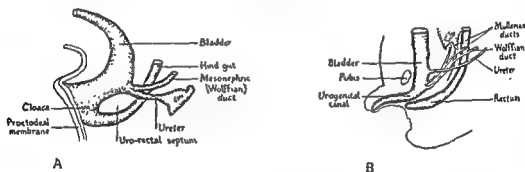 Bladder
Hind gut
Mesonephric
(Wolffian)
duct
Cloaca
Proctodeal
membrane
Ureter
Uro-rectal septum
A
Mullerian
ducts
Wolffian
duct
Ureter
Bladder
Pubis
Urogenital
canal
Rectum
B